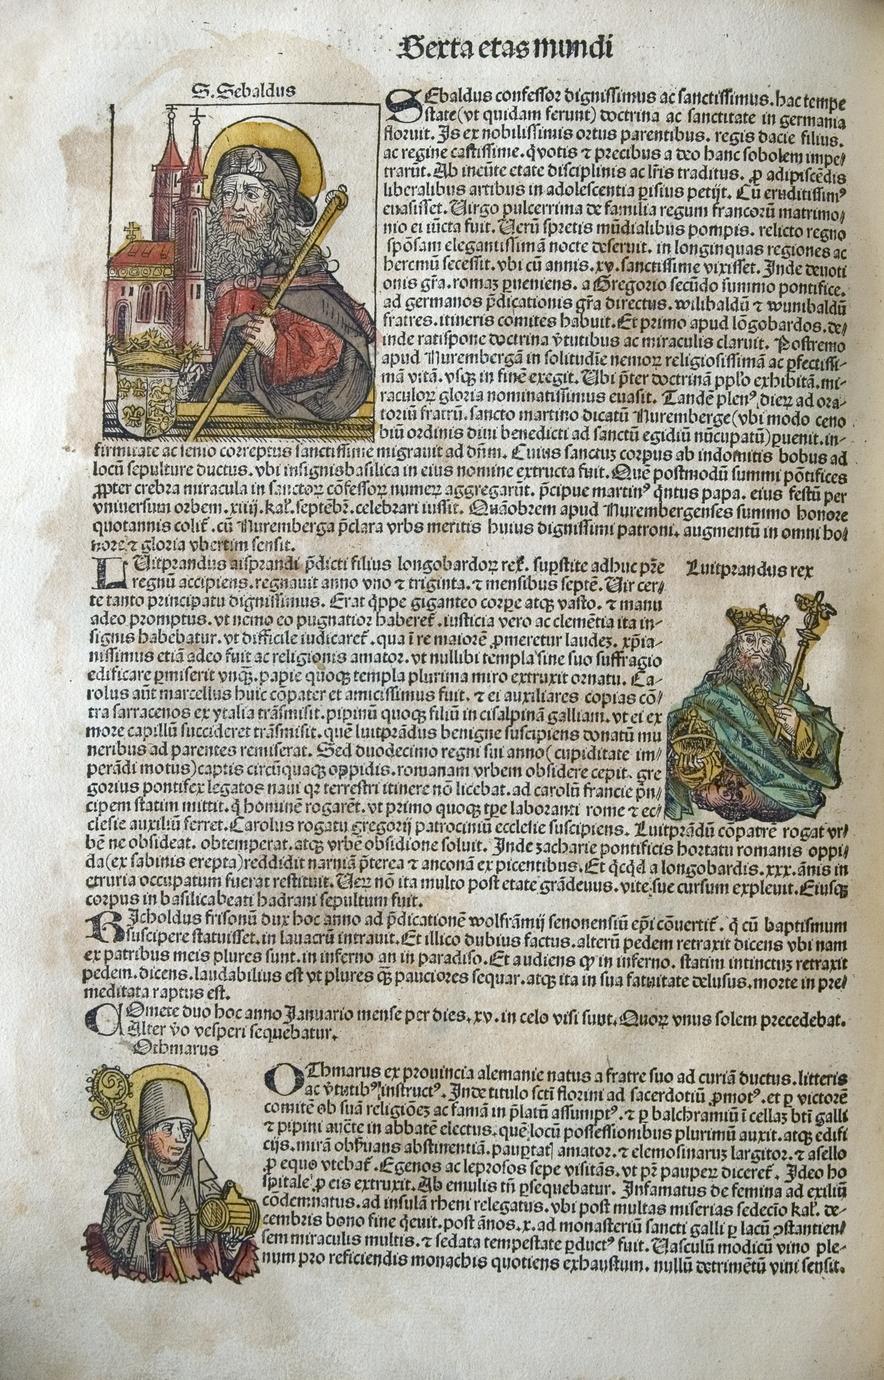 Sexta etas mundi
S. Sebaldus
SEbaldus confessor dignissimus ac sanctissimus. hac tempe
state (vt quidam ferunt) doctrina ac sanctitate in germania
floruit. Is ex nobilissimis ortus parentibus. regis dacie filius.
ac regine castissime. qͥ votis ⁊ precibus a deo hanc sobolem impe/
trarūt. Ab ineūte etate disciplinis ac lr̄is traditus. ꝓ adipiscēdis
liberalibus artibus in adolescentia ꝑisius petijt. Cū eruditissimꝰ
euasisset. Uirgo pulcerrima de familia regum francorū matrimo/
nio ei iūcta fuit. Uerū spretis mūdialibus pompis. relicto regno
spōsam elegantissimā nocte deseruit. in longinquas regiones ac
heremū secessit. vbi cū annis .xv. sanctissime vixisset. Inde deuoti
onis gr̄a. romaꝫ ꝑueniens. a Gregorio secūdo summo pontifice.
ad germanos p̄dicationis gr̄a directus. wilibaldū ⁊ wunibaldū
fratres. itineris comites habuit. Et primo apud lōgobardos. de/
inde ratispone doctrina v̄tutibus ac miraculis claruit. Postremo
apud Nurembergā in solitudīe nemoꝝ religiosissimā ac ꝑfectissi-
mā vitā. vsqꝫ in finē exegit. Ubi p̄ter doctrinā pplo exhibitā. mi-
raculoꝝ gloria nominatissimus euasit. Tandē plenꝰ dieꝝ ad ora-
toriū fratrū. sancto martino dicatū Nuremberge (vbi modo ceno
biū ordinis diui benedicti ad sanctū egidiū nūcupatū) ꝑuenit. in-
firmitate ac senio correptus sanctissime migrauit ad dn̄m. Cuius sanctuꝫ corpus ab indomitis bobus ad
locū sepulture ductus. vbi insignis basilica in eius nomine extructa fuit. Quē postmodū summi pōtifices
ꝓpter crebra miracula in sanctoꝝ cōfessoꝝ numeꝝ aggregarūt. p̄cipue martinꝰ qͥntus papa. eius festū per
vniuersum orbem. xiiij. kal. septēbr̄. celebrari iussit. Quāobrem apud Nurembergenses summo honore
quotannis colit̄. cū Nuremberga p̄clara vrbs meritis huius dignissimi patroni. augmentū in omni ho/
nore. ⁊ gloria vbertim sensit.
Luitprandus rex
LUitprandus aisprandi p̄dicti filius longobardoꝝ rex. suꝑstite adhuc pr̄e
regnū accipiens. regnauit anno vno ⁊ triginta. ⁊ mensibus septē. Uir cer/
te tanto principatu dignissimus. Erat qͥppe giganteo corꝑe atqꝫ vasto. ⁊ manu
adeo promptus. vt nemo eo pugnatior haberet̄. iusticia vero ac clemētia ita in-
signis habebatur. vt difficile iudicaret̄. qua ī re maiorē ꝓmeretur laudeꝫ. xp̄ia-
nissimus etiā adeo fuit ac religionis amator. vt nullibi templa sine suo suffragio
edificare ꝑmiserit vnqꝫ. papie quoqꝫ templa plurima miro extruxit ornatu. Ca-
rolus aūt marcellus huic cōpater et amicissimus fuit. ⁊ ei auxiliares copias cō/
tra sarracenos ex ytalia trāsmisit. pipinū quoqꝫ filiū in cisalpinā galliam. vt ei ex
more capillū succideret trāsmisit. quē luitprādus benigne suscipiens donatū mu
neribus ad parentes remiserat. Sed duodecimo regni sui anno (cupiditate im/
perādi motus) captis circūquaqꝫ oppidis. romanam vrbem obsidere cepit. gre
gorius pontifex legatos naui qꝛ terrestri itinere nō licebat. ad carolū francie pn̄/
cipem statim mittit. qͥ hominē rogarēt. vt primo quoqꝫ tꝑe laboranti rome ⁊ ec/
clesie auxiliū ferret. Carolus rogatu gregorij patrociniū ecclesie suscipiens. Luitprādū cōpatrē rogat vr/
bē ne obsideat. obtemperat. atqꝫ vrbē obsidione soluit. Inde zacharie pontificis hortatu romanis oppi/
da (ex sabinis erepta) reddidit narniā p̄terea ⁊ anconā ex picentibus. Et qͥcqͥd a longobardis. xxx. ānis in
etruria occupatum fuerat restituit. Ueꝝ nō ita multo post etate grādeuus. vite sue cursum expleuit. Eiusqꝫ
corpus in basilica beati hadrani sepultum fuit.
RIcholdus frisonū dux hoc anno ad p̄dicationē wolframij senonensiū ep̄i cōuertit̄. qͥ cū baptismum
suscipere statuisset. in lauacrū intrauit. Et illico dubius factus. alterū pedem retraxit dicens vbi nam
ex patribus meis plures sunt. in inferno an in paradiso. Et audiens ꝙ in inferno. statim intinctuꝫ retraxit
pedem. dicens. laudabilius est vt plures qꝫ̄ pauciores sequar. atqꝫ ita in sua fatuitate delusus. morte in pre/
meditata raptus est.
COmete duo hoc anno Januario mense per dies. xv. in celo visi sunt. Quoꝝ vnus solem precedebat.
Alter v̄o vesperi sequebatur.
Othmarus
OThmarus ex prouincia alemanie natus a fratre suo ad curiā ductus. litteris
ac v̄tutibꝰ instructꝰ. Inde titulo scti florini ad sacerdotiū ꝓmotꝰ. et ꝑ victorē
comitē ob suā religiōeꝫ ac famā in p̄latū assumptꝰ. ⁊ ꝑ balchramiū ī cellaꝫ bt̄i galli
⁊ pipini aucte in abbatē electus. quē locū possessionibus plurimū auxit. atqꝫ edifi
cijs. mirā obẜuans abstinentiā. pauꝑtatꝭ amator. ⁊ elemosinaꝝ largitor. ⁊ asello
ꝓ equo vtebat̄. Egenos ac leprosos sepe visitās. vt pr̄ pauꝑeꝝ diceret̄. Ideo ho
spitale ꝓ eis extruxit. Ab emulis tn̄ ꝑsequebatur. Infamatus de femina ad exiliū
cōdemnatus. ad insulā rheni relegatus. vbi post multas miserias sedecīo kal. de-
cembris bono fine qͥeuit. post ānos. x. ad monasteriū sancti galli ꝑ lacū ꝯstantien/
sem miraculis multis. ⁊ sedata tempestate ꝑductꝰ fuit. Uasculū modicū vino ple-
num pro reficiendis monachis quotiens exhaustum. nullū detrimētū vini sensit.